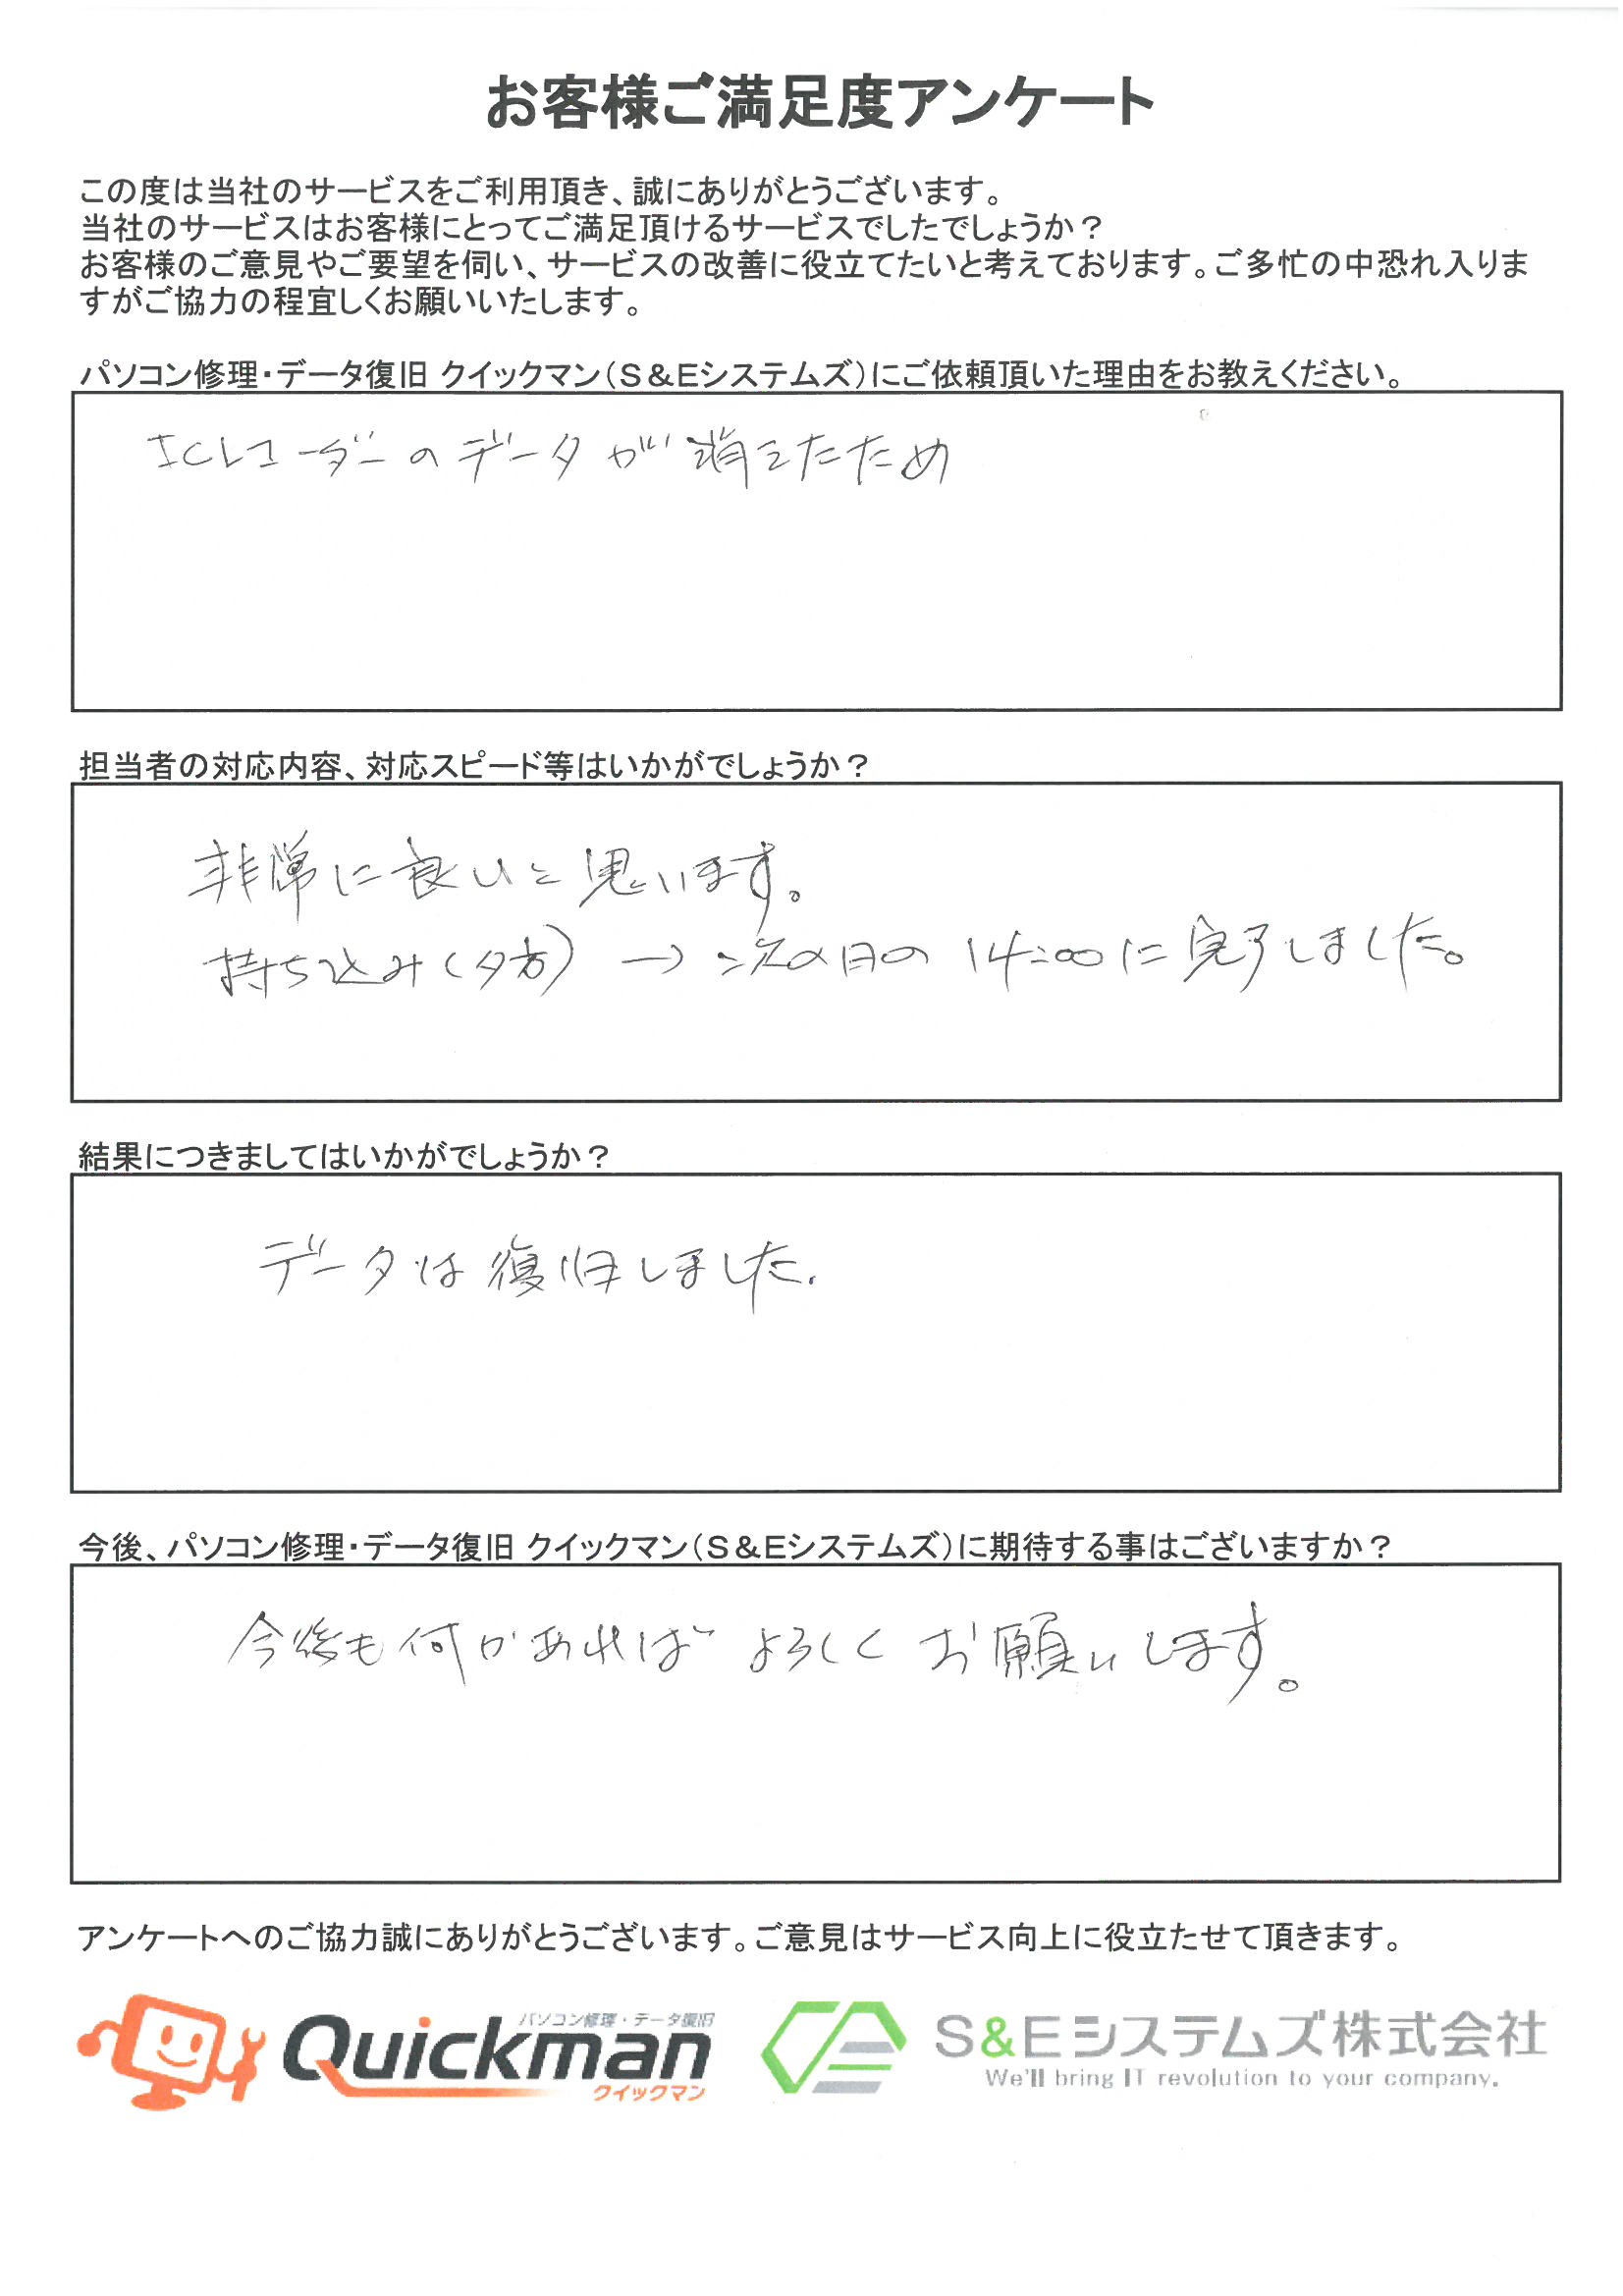 お客様ご満足度アンケート
この度は当社のサービスをご利用頂き、誠にありがとうございます。
当社のサービスはお客様にとってご満足頂けるサービスでしたでしょうか？
お客様のご意見やご要望を伺い、サービスの改善に役立てたいと考えております。ご多忙の中恐れ入りま
すがご協力の程宜しくお願いいたします。
パソコン修理・データ復旧 クイックマン（S＆Eシステムズ）にご依頼頂いた理由をお教えください。
ICレコーダーのデータが消えたため
担当者の対応内容、対応スピード等はいかがでしょうか？
非常に良いと思います。
持ち込み（夕方）→次の日の14:00に完了しました。
結果につきましてはいかがでしょうか？
データは復旧しました.
今後、パソコン修理・データ復旧 クイックマン（S＆Eシステムズ）に期待する事はございますか？
今後も何かあれば よろしく お願いします。
アンケートへのご協力誠にありがとうございます。ご意見はサービス向上に役立たせて頂きます。
パソコン修理・データ復旧
Quickman
クイックマン
S&Eシステムズ株式会社
We'll bring IT revolution to your company.